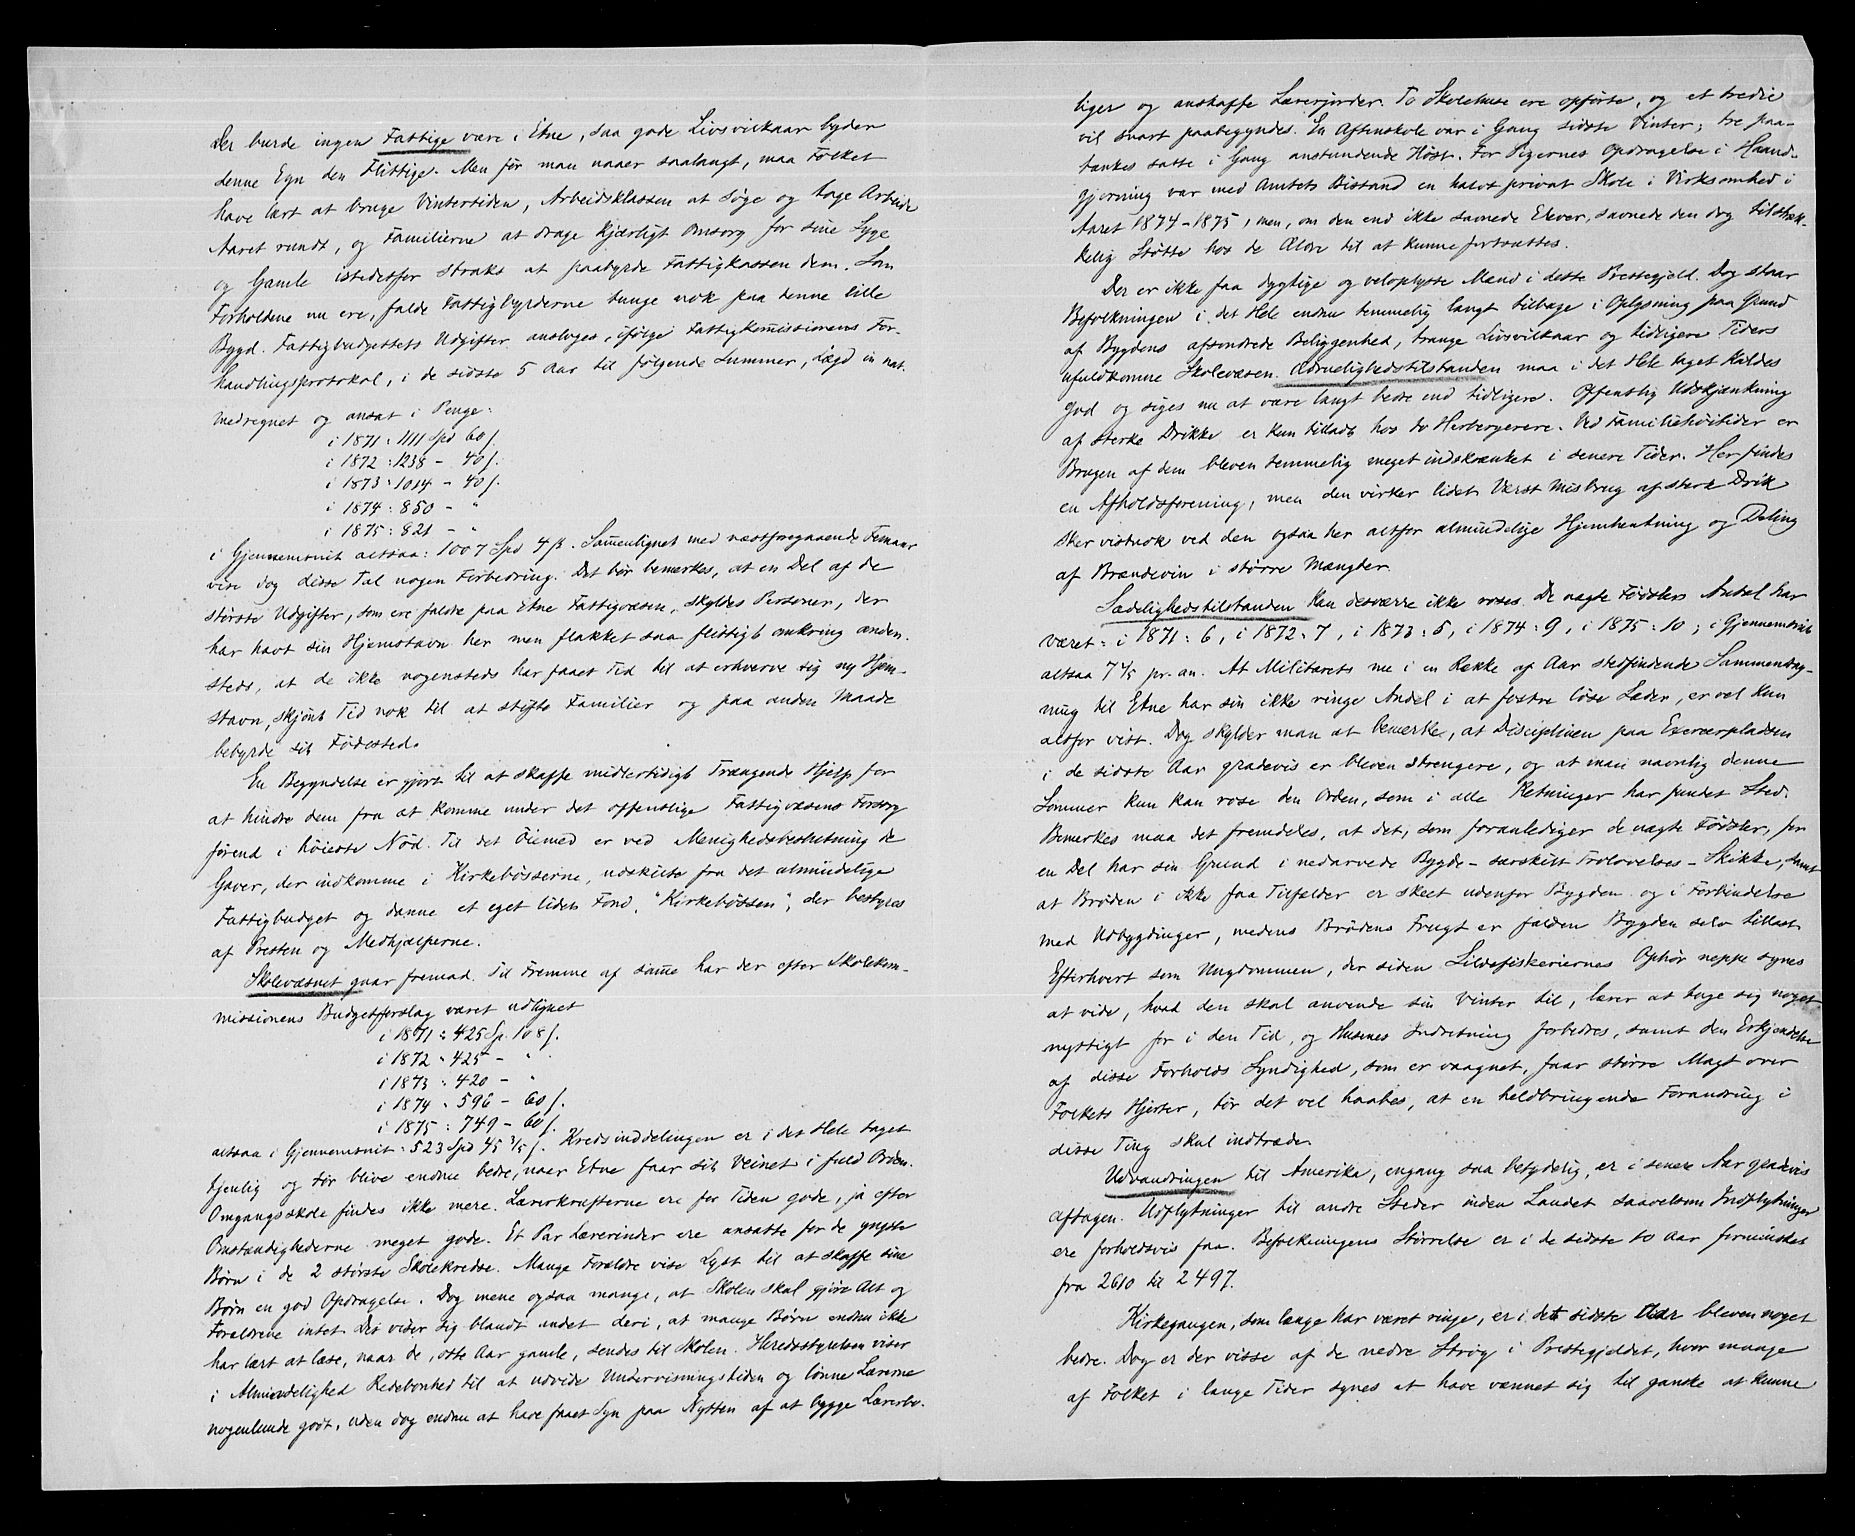 Der burde ingen Fattige være i Etne, saa gode Livsvilkaar byder
denne Egn den Flittige. Men før man naaer saalangt, maa Folket
have lært at bruge Vintertiden, Arbeidsklassen at søge og tage Arbeide
Aaret rundt, og Familierne at drage kjærligt Omsorg for sine Syge
og Gamle istedetfor straks at paabyrde Fattigkassen dem. Som
Forholdene nu ere, falde Fattigbyrderne tunge nok paa denne lille
Bygd. Fattigbudgettets Udgifter ansloges, ifølge Fattigkomissionens For-
handlingsprotokol, i de sidste 5 Aar til følgende Summer, Lægd in nat.
medregnet og ansat i Penge:
i 1871 : 1111 Spd 60 s.
i 1872 : 1238 - 40 s.
i 1873 : 1014 - 40 s.
i 1874 : 850 - "
i 1875 : 821 - "
i Gjennemsnit altsaa: 1007 Spd 4 s. Samenlignet med næstforegaaende Femaar
vise dog disse Tal nogen Forbedring. Det bør bemærkes, at en Del af de
største Udgifter, som ere faldne paa Etne Fattigvæsen, skyldes Personer, der
har havt sin Hjemstavn her men flakket saa flittigt omkring anden-
steds, at de ikke nogensteds har faaet Tid til at erhverve sig ny Hjem-
stavn, skjønt Tid nok til at stifte Familier og paa anden Maade
bebyrde sit Fødested.
En Begyndelse er gjort til at skaffe midlertidigt Trængende Hjelp for
at hindre dem fra at komme under det offentlige Fattigvæsens Forsorg
førend i høieste Nød. Til det Øiemed er ved Menighedsbeslutning de
Gaver, der indkomme i Kirkebøsserne, udskilte fra det almindelige
Fattigbudget og danne et eget lidet Fond, "Kirkebøssen", der bestyres
af Presten og Medhjælperne.
Skolevæsnet gaar fremad. Til Fremme af same har der efter Skolekom-
missionens Budgetforslag været udlignet
i 1871 : 425 Sp. 108 s.
i 1872 : 425 - "
i 1873 : 420 - "
i 1874 : 596 - 60 s.
i 1875 : 749 - 60 s.
altsaa i Gjennemsnit : 523 Spd 45 3/5 s. Kredsinddelingen er i det Hele taget
tjenlig og tør blive endnu bedre, naar Etne faar sit Veinet i fuld Orden.
Omgangsskole findes ikke mere. Lærerkræfterne ere for Tiden gode, ja efter
Omstændighederne meget gode. Et Par Lærerinder ere ansatte for de yngste
Børn i de 2 største Skolekredse. Mange Forældre vise Lyst til at skaffe sine
Børn en god Opdragelse. Dog mene ogsaa mange, at Skolen skal gjøre Alt og
Forældrene intet. Det viser sig blandt andet deri, at mange Børn endnu ikke
har lært at læse, naar de, otte Aar gamle, sendes til Skolen. Heredsstyrelsen viser
i Almindelighed Redebonhed til at udvide Undervisningstiden og lønne Lærerne
nogenlunde godt, uden dog endnu at have faaet Syn paa Nytten af at bygge Lærerbo-
liger og anskaffe Lærerjorder. To Skolehuse ere opførte, og et tredie
vil snart paabegyndes. En Aftenskole var i Gang sidste Vinter; tre paa-
tænkes satte i Gang anstundende Høst. For Pigernes Opdragelse i Haand-
gjerning var med Amtets Bistand en halvt privat Skole i Virksomhed i
Aaret 1874-1875, men, om den end ikke savnede Elever, savnede den dog tilstræk-
kelig Støtte hos de Ældre til at kunne fortsættes.
Der er ikke faa dygtige og veloplyste Mænd i dette Prestegjeld. Dog staar
Befolkningen i det Hele endnu temmelig langt tilbage i Oplysning paa Grund
af Bygdens afsondrede Beliggenhed, trange Livsvilkaar og tidligere Tiders
ufuldkomne Skolevæsen. Ædruelighedstilstanden maa i det Hele taget kaldes
god og siges nu at være langt bedre end tidligere. Offentlig Udskjænkning
af stærke Drikke er kun tilladt hos to Herbergerere. Ved Familiehøitider er
Brugen af dem bleven temmelig meget indskrænket i senere Tider. Her findes
en Afholdsforening, men den virker lidet. Værst Misbrug af stærk Drik
sker vistnok ved den ogsaa her altfor almindelige Hjemhentning og Deling
af Brændevin i større Mængder.
Sædelighedstilstanden kan desværre ikke roses. De uægte Fødslers Antal har
været : i 1871 : 6, i 1872 : 7, i 1873 : 5, i 1874 : 9, i 1875 : 10 ; i Gjennemsnit
altsaa 7 2/5 pr. an. At Militærets nu i en Række af Aar stedfindende Sammendrag-
ning til Etne har sin ikke ringe Andel i at fostre løse Sæder, er vel kun
altfor vist. Dog skylder man at bemærke, at Disciplinen paa Exercerpladsen
i de sidste Aar gradevis er bleven strengere, og at man navnlig denne
Sommer kun kan rose den Orden, som i alle Retninger har fundet Sted.
Bemerkes maa det fremdeles, at det, som foranlediger de uægte Fødsler, for
en Del har sin Grund i nedarvede Bygde- særskilt Trolovelses-Skikke, samt
at Brøden i ikke faa Tilfælder er skeet udenfor Bygden og i Forbindelse
med Udbygdinger, medens Brødens Frugt er falden Bygden selv tillast.
Efterhvert som Ungdommen, der siden Sildefiskeriernes Ophør neppe synes
at vide, hvad den skal anvende sin Vinter til, lærer at tage sig noget
nyttigt for i den Tid, og Husenes Indretning forbedres, samt den Erkjendelse
af disse Forholds Syndighed, som er vaagnet, faar større Magt over
Folkets Hjerter, tør det vel haabes, at en heldbringende Forandring i
disse Ting skal indtræde.
Udvandringen til Amerika, engang saa betydelig, er i senere Aar gradevis
aftagen. Udflytninger til andre Steder inden Landet saavelsom Indflytninger
ere forholdsvis faa. Befolkningens Størrelse er i de sidste 10 Aar formindsket
fra 2610 til 2497.
Kirkegangen, som længe har været ringe, er i det sidste Aar bleven noget
bedre. Dog er der visse af de nedre Strøg i Prestegjeldet, hvor mange
af Folket i lange Tider synes at have vænnet sig til ganske at kunne